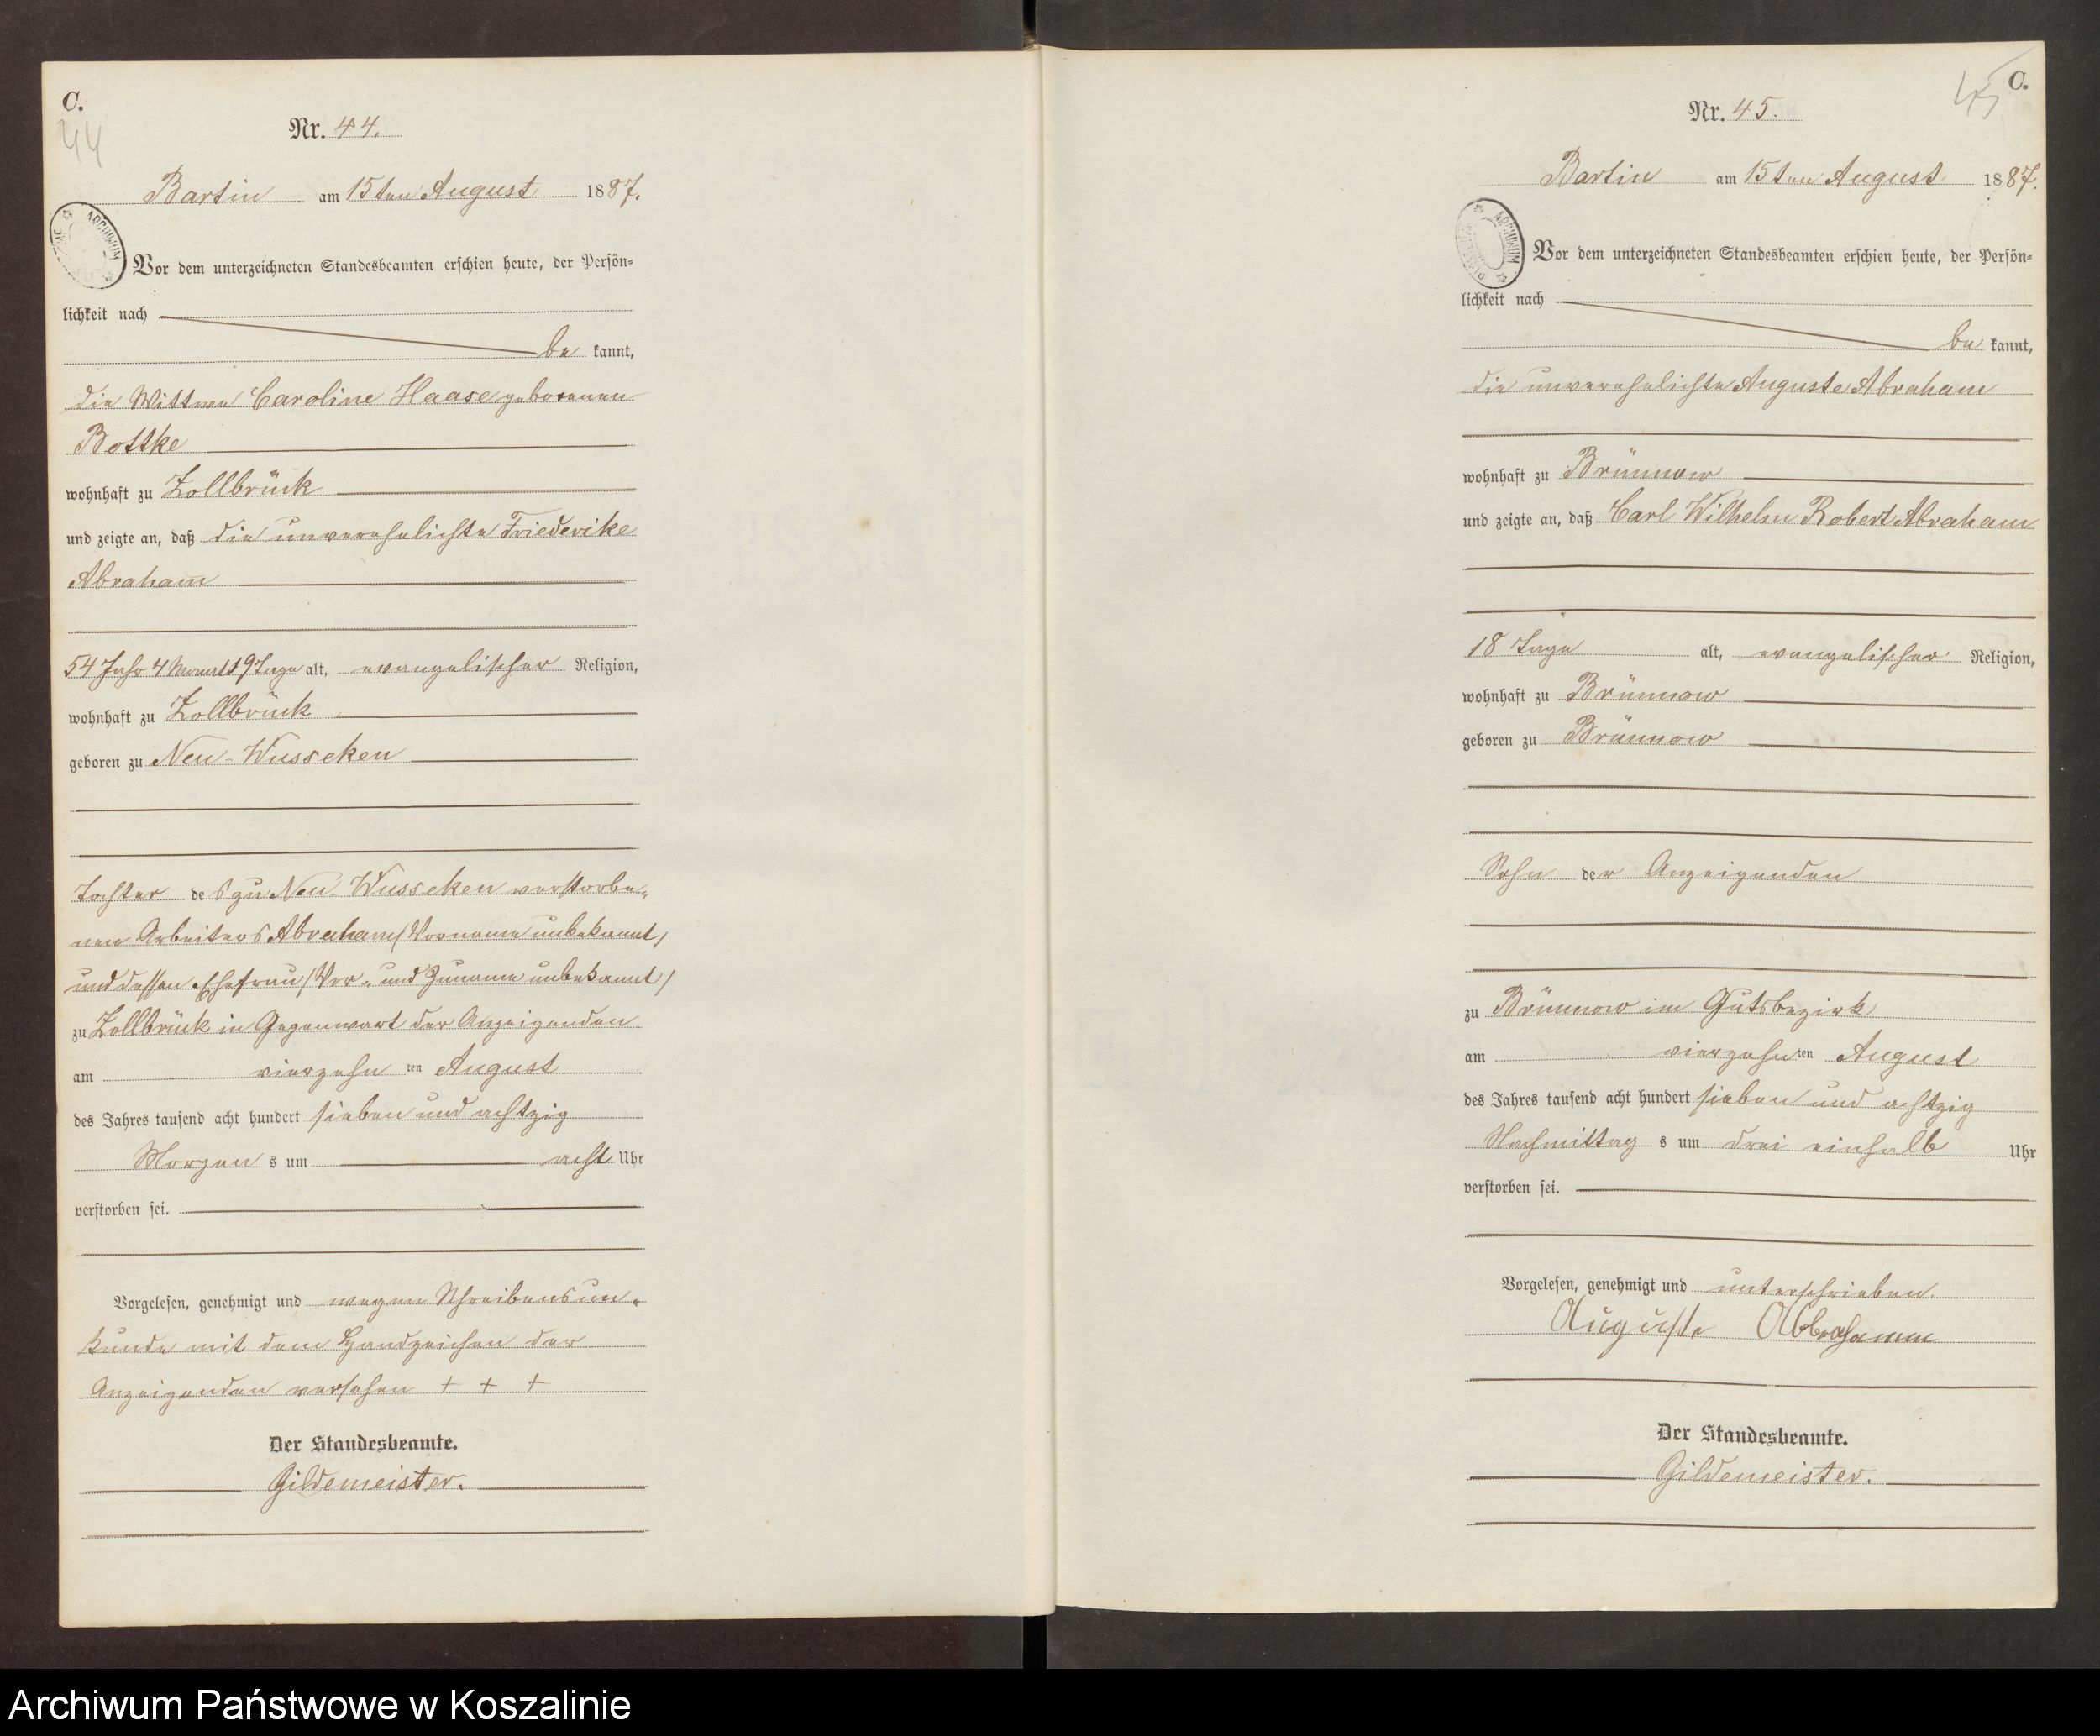 C.
44
Nr. 44.
Bartin am 15ten August 1887.
ARCHIWUM
Vor dem unterzeichneten Standesbeamten erschien heute, der Persön-
lichkeit nach
be kannt,
die Wittwe Caroline Haase geborenen
Bottke
wohnhaft zu Zollbrück
und zeigte an, daß die unverehelichte Friederike
Abraham
54 Jahr 4 Monat 19 Tage alt, evangelischer Religion,
wohnhaft zu Zollbrück
geboren zu Neu-Wusseken
Tochter des zu Neu-Wusseken verstorbe-
nen Arbeiters Abraham /Vorname unbekannt/
und dessen Ehefrau /Vor- und Zuname unbekannt/
zu Zollbrück in Gegenwart der Anzeigenden
am vierzehn ten August
des Jahres tausend acht hundert sieben und achtzig
Morgen s um acht Uhr
verstorben sei.
Vorgelesen, genehmigt und wegen Schreibensun-
kunde mit dem Handzeichen der
Anzeigenden versehen + + +
Der Standesbeamte.
Gildemeister.
C.
45
Nr. 45.
Bartin am 15ten August 1887.
ARCHIWUM
Vor dem unterzeichneten Standesbeamten erschien heute, der Persön-
lichkeit nach
be kannt,
die unverehelichte Auguste Abraham
wohnhaft zu Brünnow
und zeigte an, daß Carl Wilhelm Robert Abraham
18 Tage alt, evangelischer Religion,
wohnhaft zu Brünnow
geboren zu Brünnow
Sohn der Anzeigenden
zu Brünnow im Gutsbezirk
am vierzehn ten August
des Jahres tausend acht hundert sieben und achtzig
Nachmittag s um drei einhalb Uhr
verstorben sei.
Vorgelesen, genehmigt und unterschrieben.
Auguste Abbrahamm
Der Standesbeamte.
Gildemeister.
Archiwum Państwowe w Koszalinie